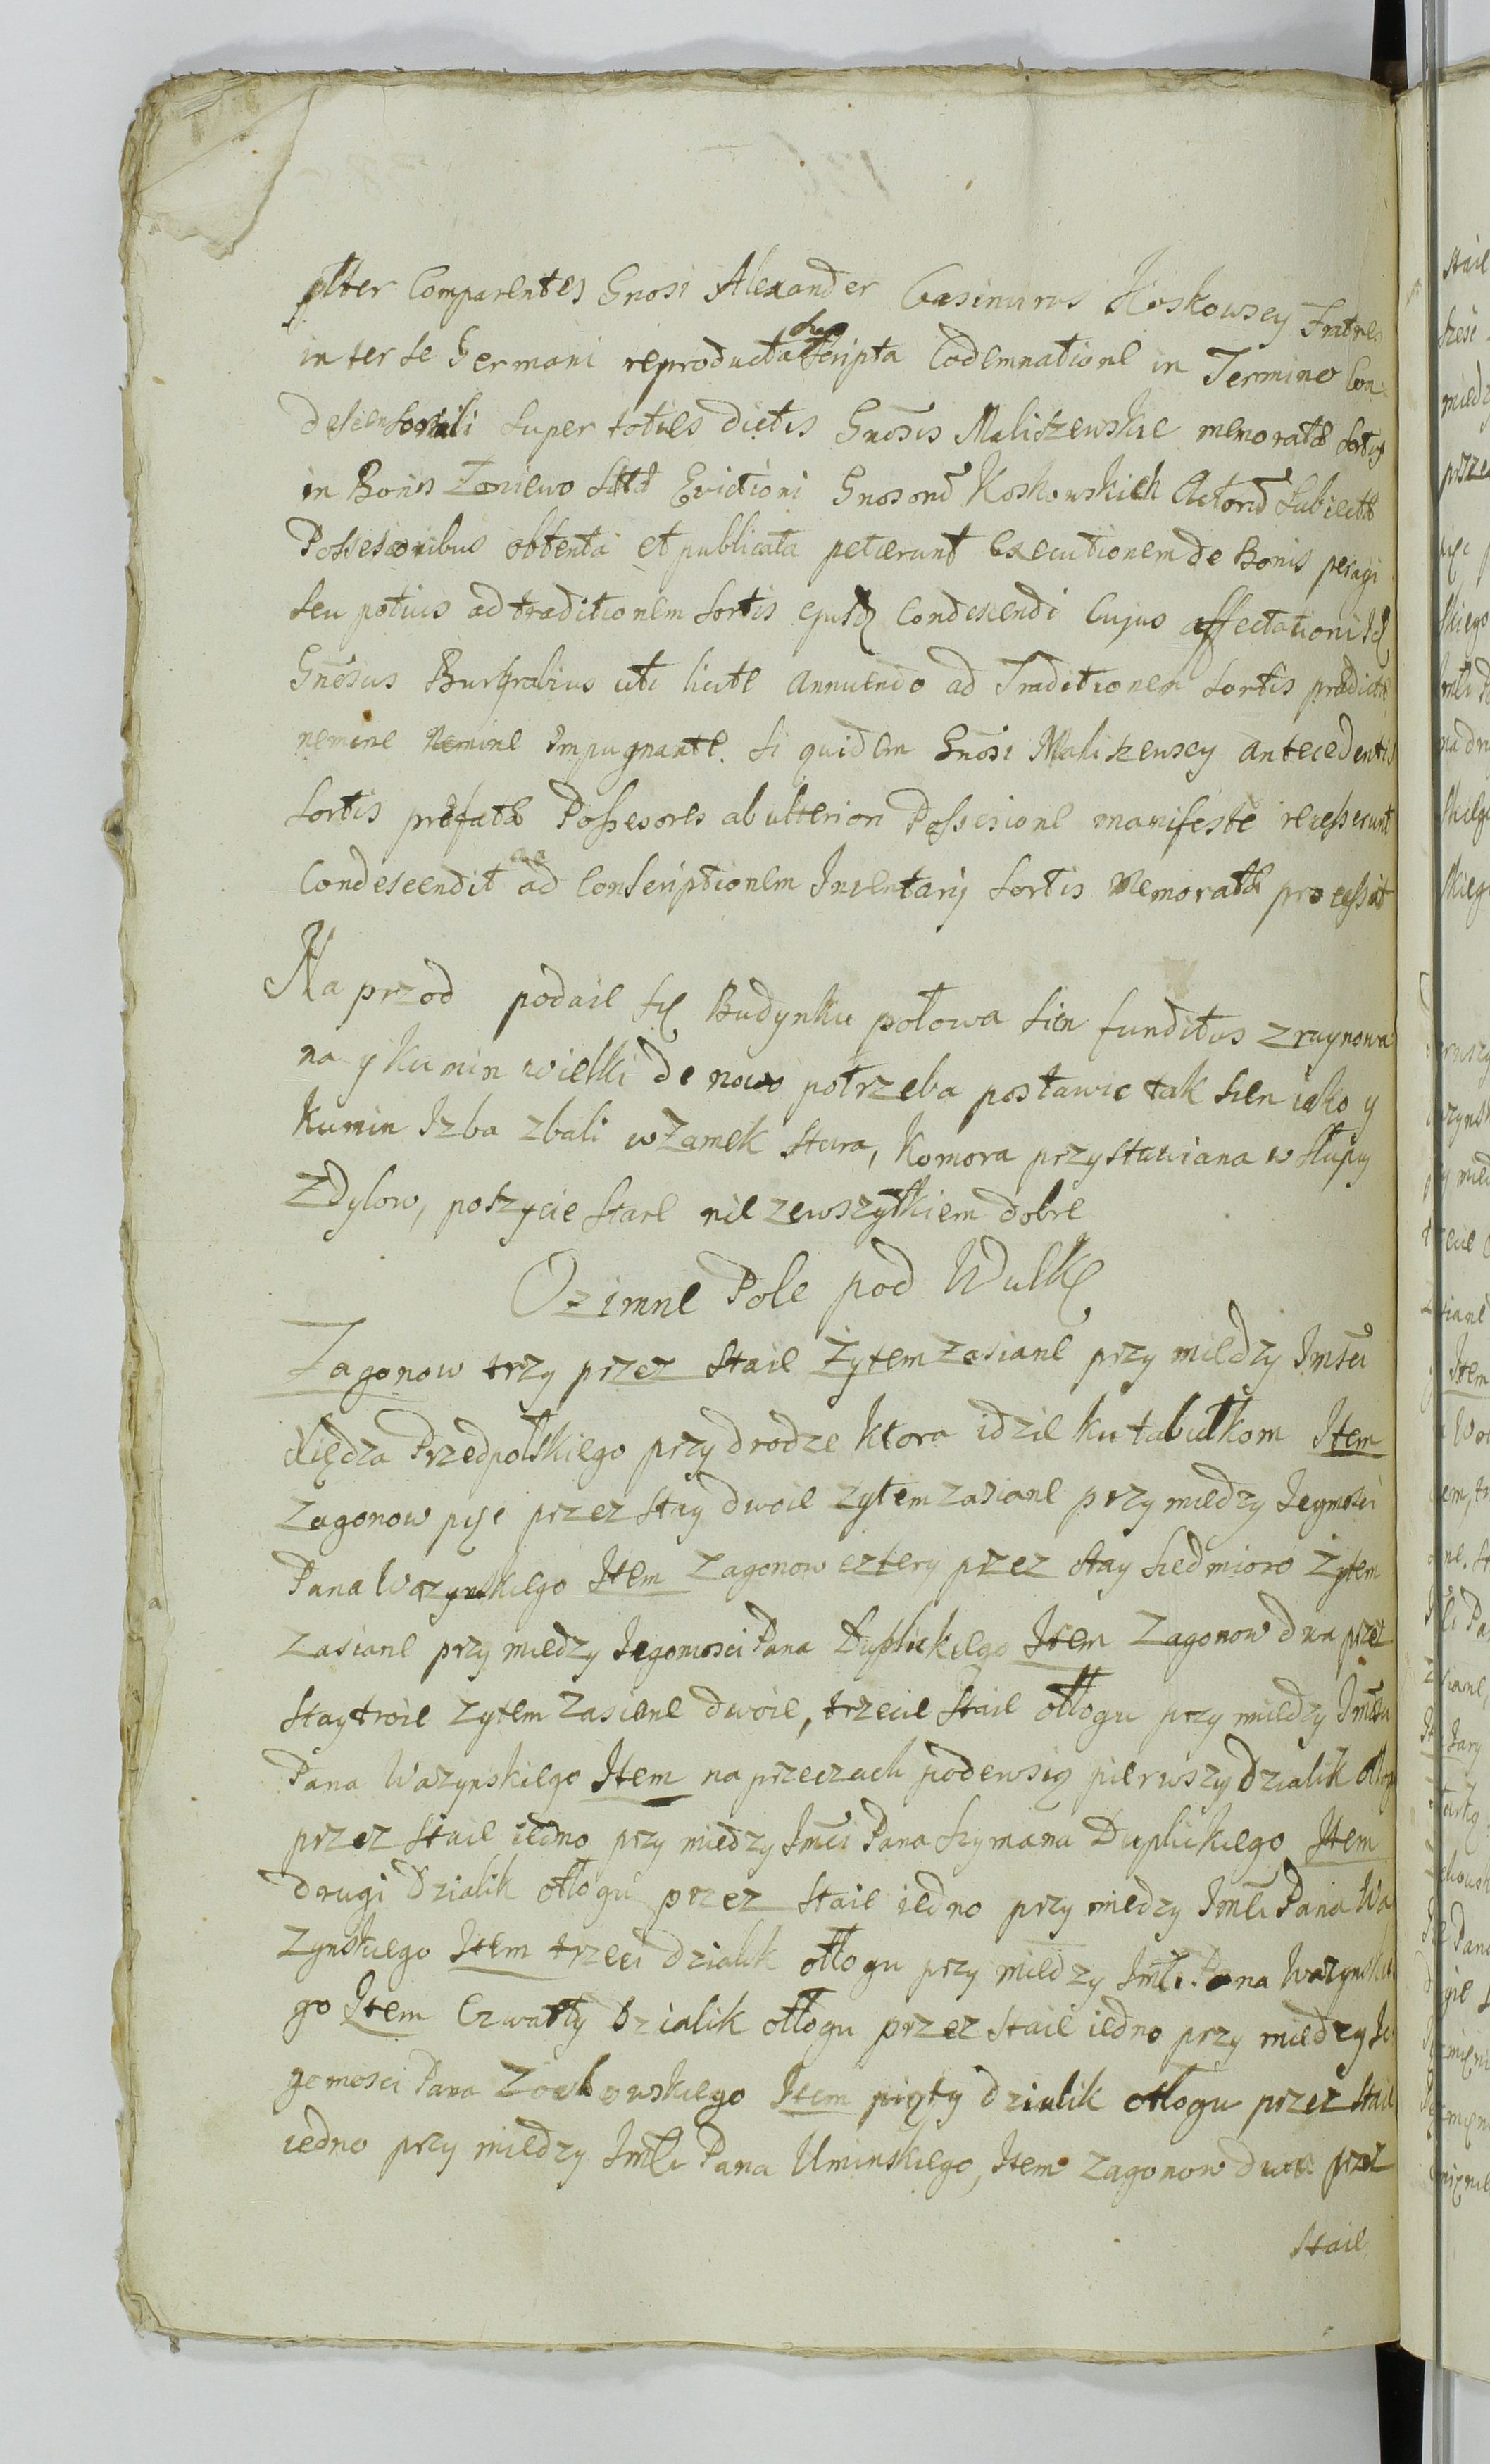 plter Comparentes Gnosi Alexander Casimirus Koskowscy Fratres
inter se Germani reproducta suprascripta Codemnatione in Termino Con
descensoriali super toties dictis Gnosis Maliszewskie memoratæ sortis
in Bonis Zoniewo sitæ Evictioni Gnosorū Koskowskich Actorū subiectæ
Possessoribus obtenta et publicata petierunt executionem de Bonis peragi
seu potius ad traditionem sortis ejusdę condescendi cujus affectationi Idę
Gnēsus Burgrabius uti licite annuendo ad Traditionem sortis prædictæ
nemine Nemine Impugnante. si quidem Gnosi Maliszewscy antecedentis
sortis præfatæ Possesores ab ulteriori Possesione manifeste recesserunt
Condescendit ad Conscriptionem Inventarij sortis memoratæ processit
Na przod podaie się Budynku połowa sien funditus zruynowa
na y kumin wielki de novo potrzeba postawic tak sien iako y
kumin Izba zbali w Zamek stara, Komora przystawiana w słupy
z Dylow, poszycie stare nie zewszytkiem dobre
Ozimne Pole pod Wulkę
Zagonow trzy przez staie żytem zasiane przy miedzy Imści
Xiędza Przedpolskiego przy drodze ktora idzie ku tabułkom Item
Zagonow pięc przez stay dwoie zytem zasiane przy miedzy Jegmości
Pana Wazynskiego Item Zagonow cztery przez stay siedmioro żytem
zasiane przy miedzy Jegomosci Pana Duplickiego Item Zagonow dwa przez
stay troie zytem zasiane dwoie, trzecie staie otłogu przy miedzy Imści
Pana Wazynskiego Item na przeczach podewsią pierwszy dzialik otłogu
przez staie iedno przy miedzy Imći Pana Szymana Duplickiego Item
drugi Dzialik otłogu przez staie iedno przy miedzy Imći Pana Wa
zynskiego Item trzeci Dzialik otłogu przy miedzy Imći Pana Wazynskie
go Item Czwarty Dzialik otłogu przez staie iedno przy miedzy Je
gomosci Pana Item piąty dzialik otłogu przez staie
iedno przy miedzy Imći Pana Uminskiego, Item zagonow dwa przez
staie